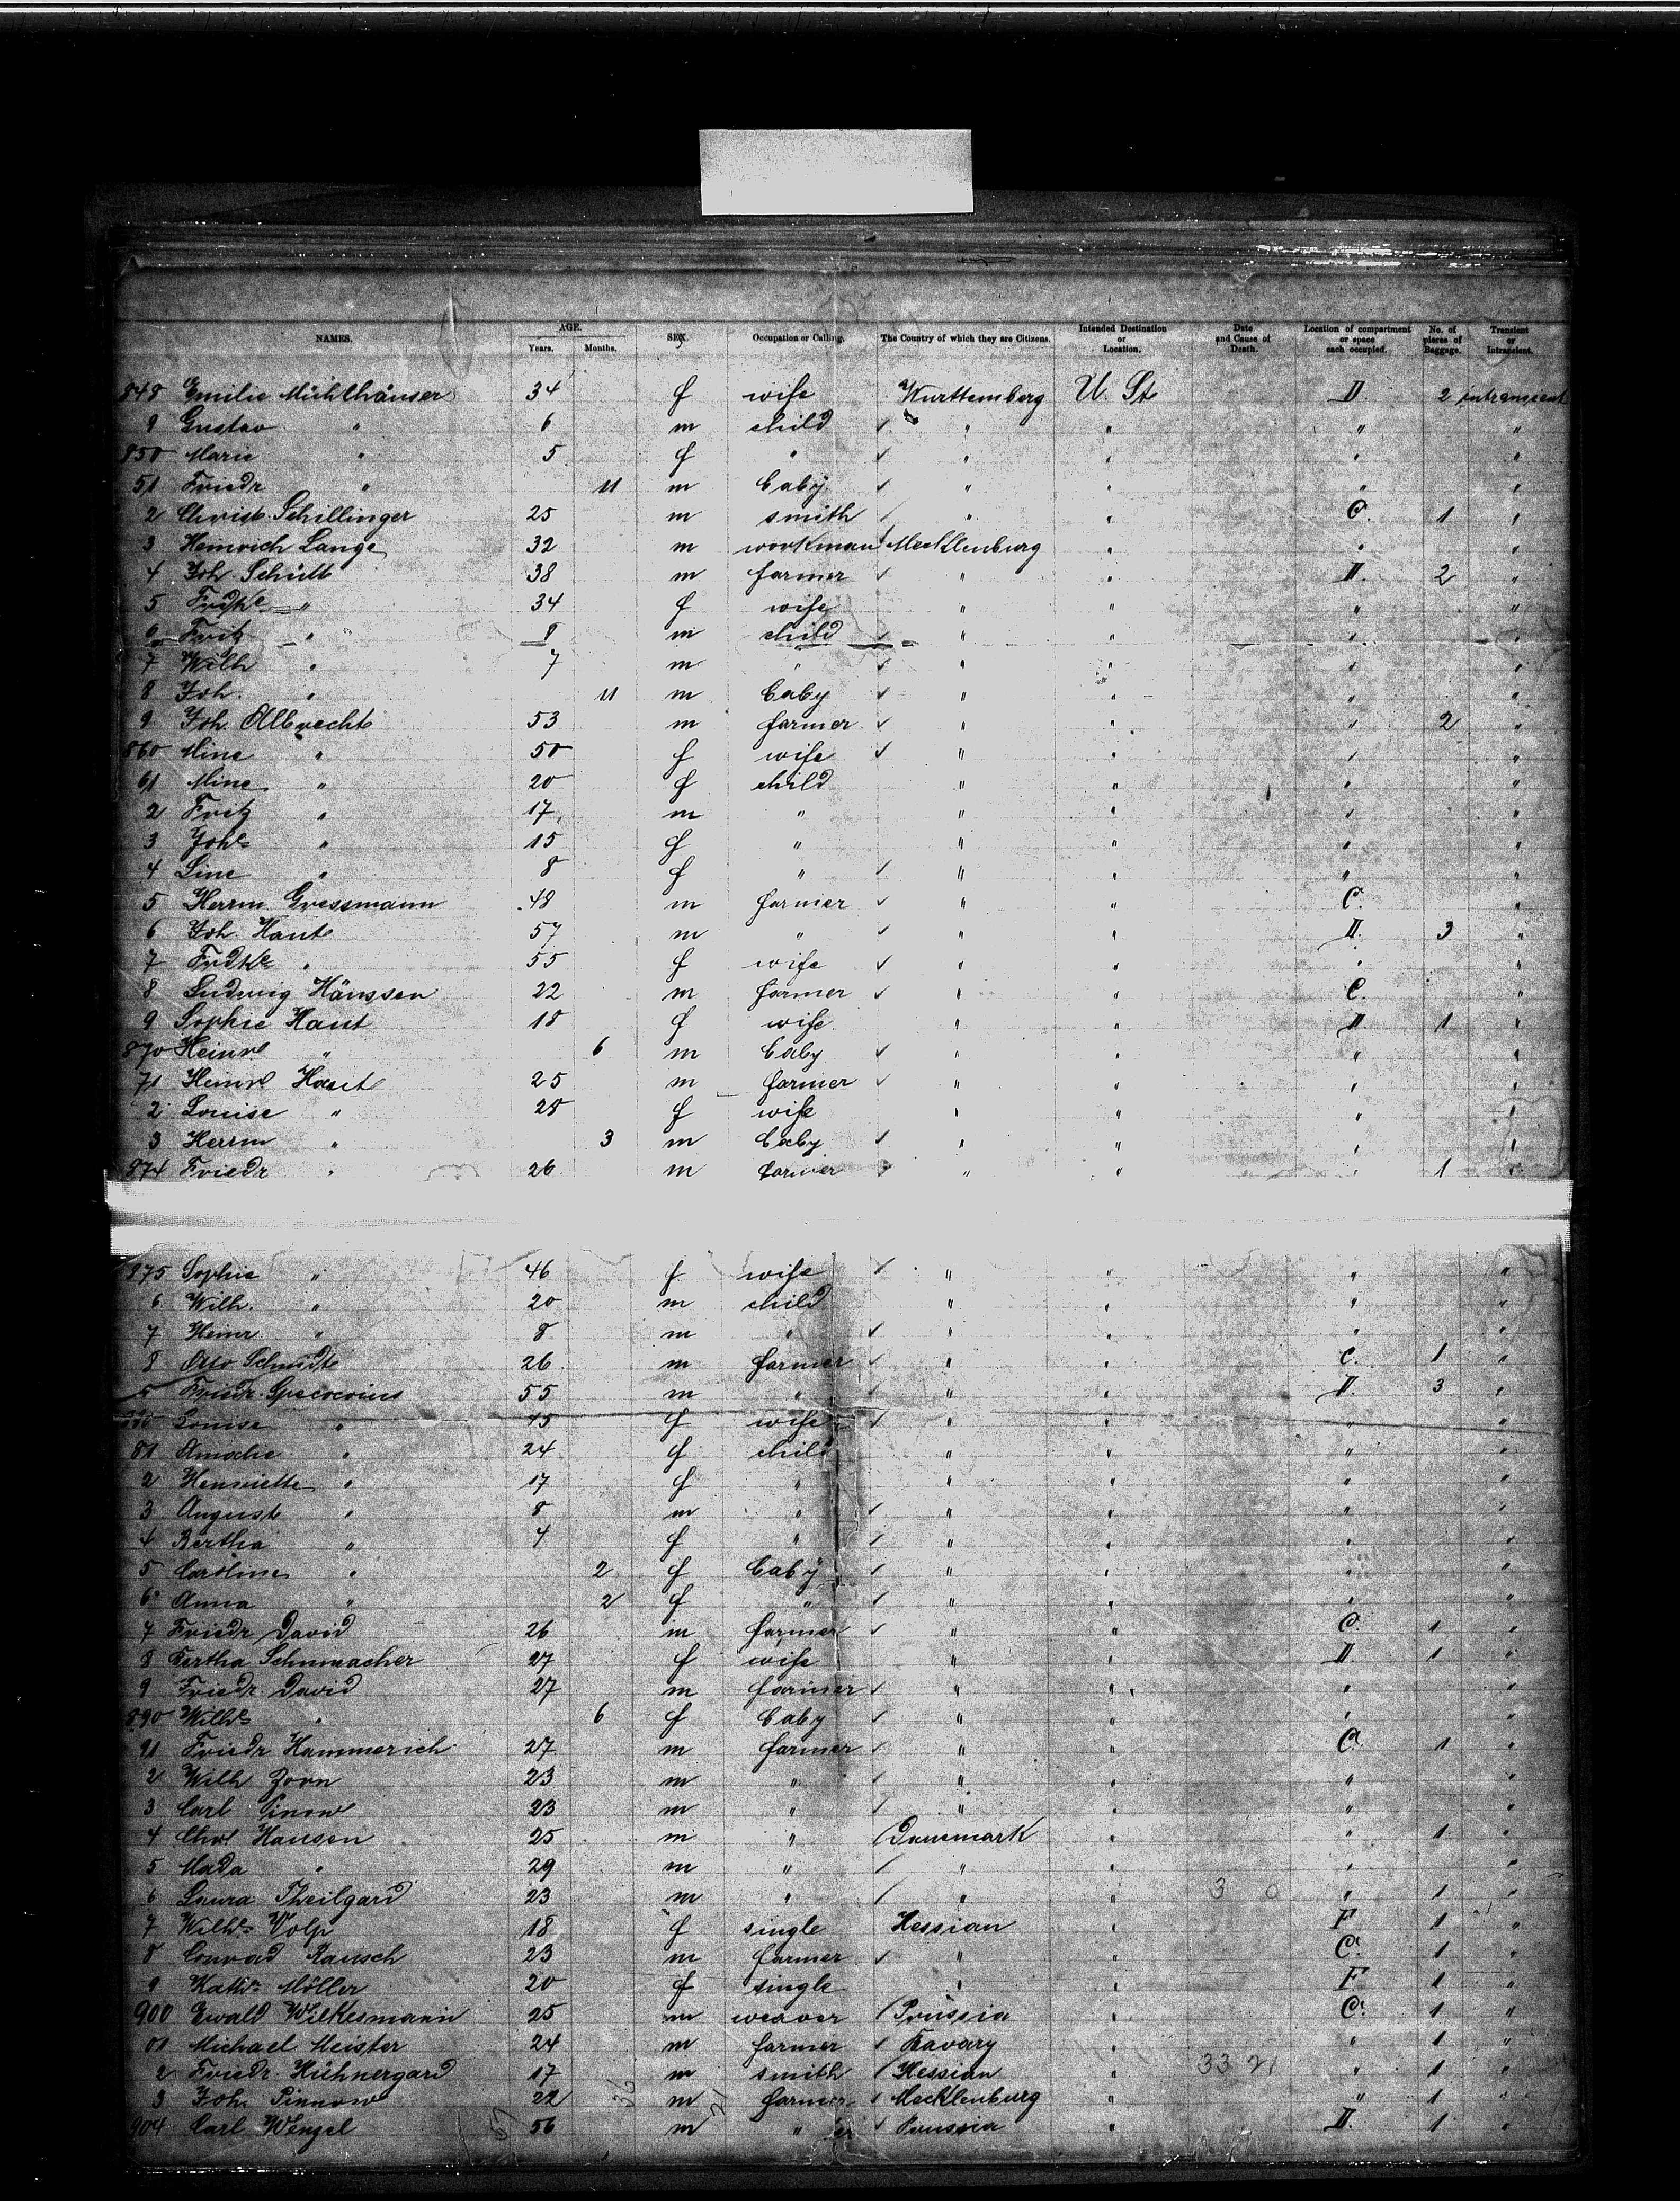 NAMES. AGE. Years. Months. SEX. Occupation or Calling. The Country of which they are Citizens. Intended Destination or Location. Date and Cause of Death. Location of compartment or space each occupied. No. of pieces of Baggage. Transient or Intransient.
848 Emilie Mühlhäuser 34 f wife Württemberg U. St. II. 2 intransient
9 Gustav " 6 m child " " " "
850 Marie " 5 f " " " " "
51 Friedr " 11 m baby " " " "
2 Christ. Schillinger 25 m smith " " C. 1 "
3 Heinrich Lange 32 m workman Mecklenburg " " "
4 Joh. Schütt 38 m farmer " " II. 2 "
5 Fridke " 34 f wife " " " "
6 Fritz " 8 m child " " " "
7 Wilh " 7 m " " " " "
8 Joh. " 11 m baby " " " "
9 Joh. Albrecht 53 m farmer " " " 2 "
860 Mine " 50 f wife " " " "
61 Mine " 20 f child " " " "
2 Fritz " 17 m " " " " "
3 Johe " 15 f " " " " "
4 Line " 8 f " " " " "
5 Herrm. Gressmann 48 m farmer " " C. "
6 Joh. Haut 57 m " " " II. 3 "
7 Frdke " 55 f wife " " " "
8 Ludwig Hänssen 22 m farmer " " C. "
9 Sophie Haut 18 f wife " " II. 1 "
870 Heinr " 6 m baby " " " "
71 Heinr Haut 25 m farmer " " " "
2 Louise " 28 f wife " " " "
3 Herrm " 3 m baby " " " "
874 Friedr " 26 m farmer " " " 1 "
875 Sophie " 46 f wife " " " "
6 Wilh. " 20 m child " " " "
7 Heinr " 8 m " " " " "
8 Otto Schmidt 26 m farmer " " C. 1 "
Friedr. 55 m " " " II. 3 "
Louise " 45 f wife " " " "
81 " 24 f child " " " "
2 Henriette " 17 f " " " " "
3 August " 8 m " " " " "
4 Bertha " 4 f " " " " "
5 Caroline " 2 f baby " " " "
6 Anna " 2 f " " " " "
7 Friedr David 26 m farmer " " C. 1 "
8 Bertha Schumacher 27 f wife " " II. 1 "
9 Friedr. David 27 m farmer " " " "
890 Wilhe " 6 f baby " " " "
91 Friedr Hammerich 27 m farmer " " C. 1 "
2 Wilh Zorn 23 m " " " " "
3 Carl Pinow 23 m " " " " "
4 Chr. Hansen 25 m " Danemark " " 1 "
5 Mada " 29 m " " " " "
6 Laura Theilgard 23 m " " " 3 0 " 1 "
7 Wilhe Volp 18 f single Hessian " F 1 "
8 Conrad Rausch 23 m farmer " " C. 1 "
9 Kathr. Möller 20 f single " " F 1 "
900 Ewald Wilkesmann 25 m weaver Prussia " C. 1 "
01 Michael Meister 24 m farmer Bavary " " 1 "
2 Friedr. Hühnergard 17 m smith Hessian " 33 21 " 1 "
3 Joh. Pinnow 22 36 m 21 farmer Mecklenburg " " 1 "
904 Carl Wenzel 56 m " Prussia " II. 1 "